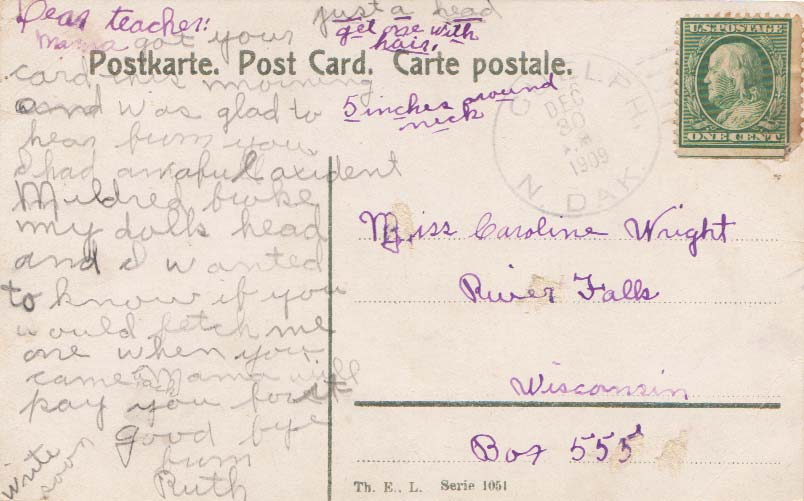 Dear teacher:
Mama got your
card this morning
and was glad to
hear frum you
I had an awful axident
Mildred broke
my dolls head
and I wanted
to know if you
would fetch me
one when you
came Mama will
pay you for it
good bye
frum
Ruth
write
soon
just a head
get one with
hair.
5 inches around
neck
Postkarte. Post Card. Carte postale.
GUELPH.
DEC
30
1909
N. DAK.
U.S. POSTAGE
ONE CENT
Miss Caroline Wright
River Falls
Wisconsin
Box 555
Th. E., L. Serie 1051